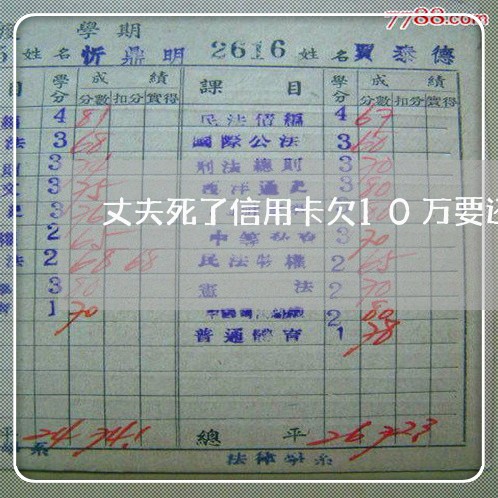 7788.com
學期
姓名 忻鼎明 2616 姓名 賈泰德
目 學分 成績 課目 學分 成績
分數 扣分 實得 分數 扣分 實得
4 81 民法債編 4 67
法 3 68 國際公法 3 60
3 刑法總則 3 70
3 75 西洋通史 80
丈夫死了信用卡欠10万要还
2 65 3 70
法 2 68 68 民法物權 2 65
3 80 憲法 2 70
1 70 2 80
普通體育 1 78
平 24 74.1 總平 26 72.3
系 法律學系